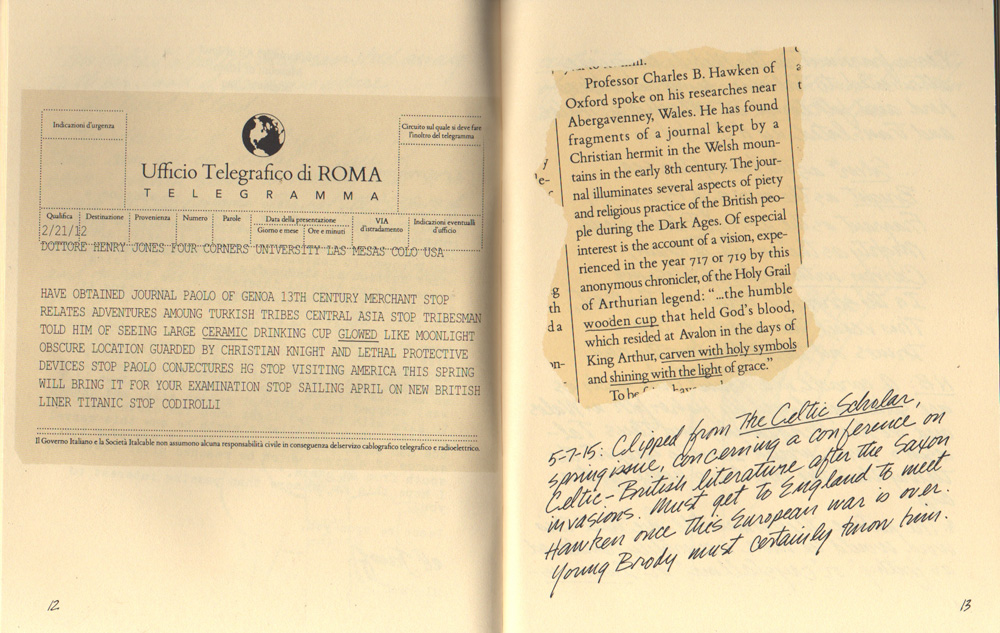 Indicazioni d'urgenza
Ufficio Telegrafico di ROMA
TELEGRAMMA
Circuito sul quale si deve fare
l'inoltro del telegramma
Qualifica Destinazione Provenienza Numero Parole Data della presentazione VIA Indicazioni eventuali
Giorno e mese Ore e minuti d'istradamento d'ufficio
2/21/12
DOTTORE HENRY JONES FOUR CORNERS UNIVERSITY LAS MESAS COLO USA
HAVE OBTAINED JOURNAL PAOLO OF GENOA 13TH CENTURY MERCHANT STOP
RELATES ADVENTURES AMOUNG TURKISH TRIBES CENTRAL ASIA STOP TRIBESMAN
TOLD HIM OF SEEING LARGE CERAMIC DRINKING CUP GLOWED LIKE MOONLIGHT
OBSCURE LOCATION GUARDED BY CHRISTIAN KNIGHT AND LETHAL PROTECTIVE
DEVICES STOP PAOLO CONJECTURES HG STOP VISITING AMERICA THIS SPRING
WILL BRING IT FOR YOUR EXAMINATION STOP SAILING APRIL ON NEW BRITISH
LINER TITANIC STOP CODIROLLI
Il Governo Italiano e la Società Italcable non assumono alcuna responsabilità civile in conseguenza delservizo cablografico telegrafico e radioelettrico.
12.
Professor Charles B. Hawken of
Oxford spoke on his researches near
Abergavenney, Wales. He has found
fragments of a journal kept by a
Christian hermit in the Welsh moun-
tains in the early 8th century. The jour-
nal illuminates several aspects of piety
and religious practice of the British peo-
ple during the Dark Ages. Of especial
interest is the account of a vision, expe-
rienced in the year 717 or 719 by this
anonymous chronicler, of the Holy Grail
of Arthurian legend: “...the humble
wooden cup that held God's blood,
which resided at Avalon in the days of
King Arthur, carven with holy symbols
and shining with the light of grace.”
To be
5-7-15: Clipped from The Celtic Scholar,
spring issue, concerning a conference on
Celtic-British literature after the Saxon
invasions. Must get to England to meet
Hawken once this European war is over.
Young Brody must certainly know him.
13